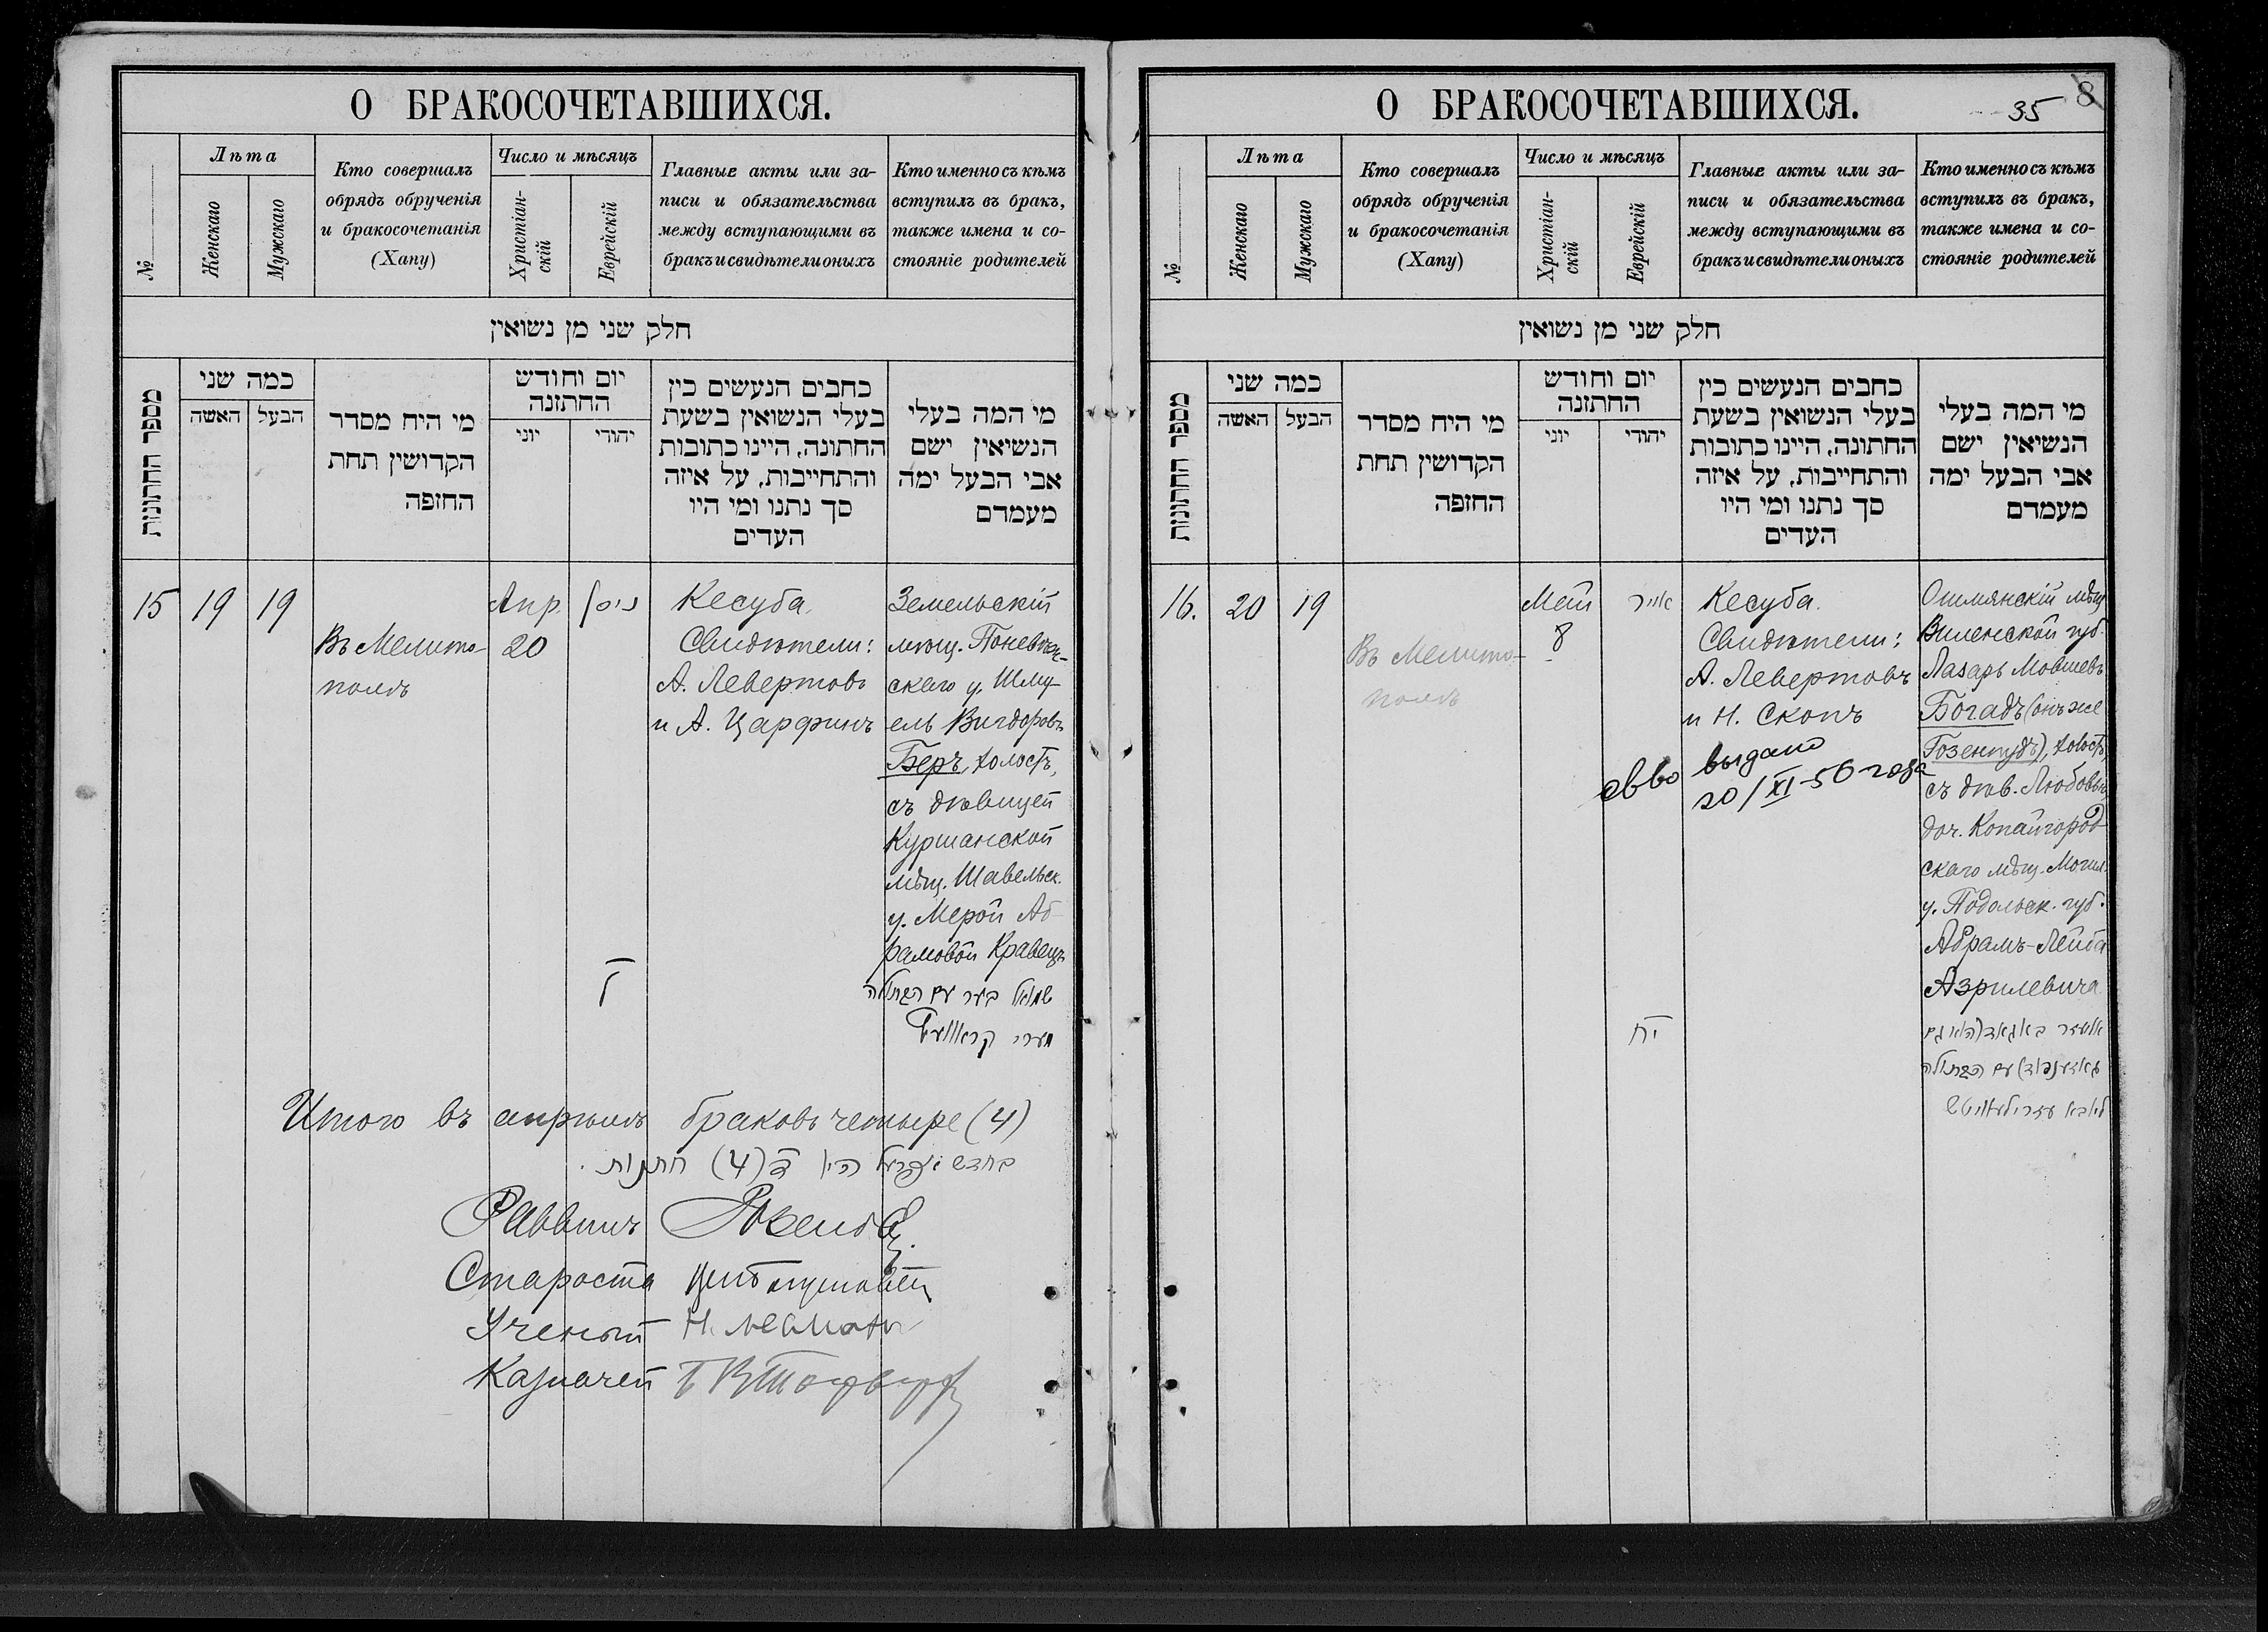 О БРАКОСОЧЕТАВШИХСЯ.
№
Лѣта
Женскаго
Мужскаго
Кто совершалъ
обрядъ обрученія
и бракосочетанія
(Хапу)
Число и мѣсяцъ
Христіан-
скій
Еврейскій
Главные акты или за-
писи и обязательства
между вступающими въ
бракъ и свидѣтели оныхъ
Кто именно съ кѣмъ
вступилъ въ бракъ,
также имена и со-
стояніе родителей
חלק שני מן נשואין
מספר החתונות
כמה שני
האשה
הבעל
מי היח מסדר
הקדושין תחת
החזפה
יום וחודש
החתזנה
יוני
יהודי
כחבים הנעשים כין
בעלי הנשואין בשעת
החתונה, היינו כתובות
והתחייבות, על איזה
סך נתנו ומי היו
העדים
מי המה בעלי
הנשיאין ישם
אבי הבעל ימה
מעמדם
15
19
19
Въ Мелито-
полѣ
Апр.
20
ניסן
ל
Кесуба.
Свидѣтели:
А. Левертовъ
и А. Царфинъ
Земельскій
мѣщ. Поневѣж-
скаго у. Шму-
ель Вигдоровъ
Беръ, холостъ,
съ дѣвицей
Куршанской
мѣщ. Шавельск.
у. Мерой Аб-
рамовой Кравецъ
שמואל בער עם הבתולה
מערי קראוועץ
Итого въ апрѣлѣ браковъ четыре (4)
בחדש אפריל היו ד (4) חתנות.
Раввинъ
Староста
Ученый
Казначей
О БРАКОСОЧЕТАВШИХСЯ.
35
8
№
Лѣта
Женскаго
Мужскаго
Кто совершалъ
обрядъ обрученія
и бракосочетанія
(Хапу)
Число и мѣсяцъ
Христіан-
скій
Еврейскій
Главные акты или за-
писи и обязательства
между вступающими въ
бракъ и свидѣтели оныхъ
Кто именно съ кѣмъ
вступилъ въ бракъ,
также имена и со-
стояніе родителей
חלק שני מן נשואין
מספר החתונות
כמה שני
האשה
הבעל
מי היח מסדר
הקדושין תחת
החזפה
יום וחודש
החתזנה
יוני
יהודי
כחבים הנעשים כין
בעלי הנשואין בשעת
החתונה, היינו כתובות
והתחייבות, על איזה
סך נתנו ומי היו
העדים
מי המה בעלי
הנשיאין ישם
אבי הבעל ימה
מעמדם
16.
20
19
Въ Мелито-
полѣ
Май
8
אייר
יח
Кесуба.
Свидѣтели:
А. Левертовъ
и Н. Скопъ
св-во выдано
20/XI-56 года
Ошмянскій мѣщ.
Виленской губ.
Лазарь Мовшевъ
Богадъ (онъ же
Гозенпудъ), холостъ,
съ дѣв. Любовью,
доч. Копайгород-
скаго мѣщ. Могил.
у. Подольск. губ.
Абрамъ-Лейба
Азрилевича
אליעזר באגאד (הוא גם
גאזענפוד) עם הבתולה
ליובא עזרילעוויטש